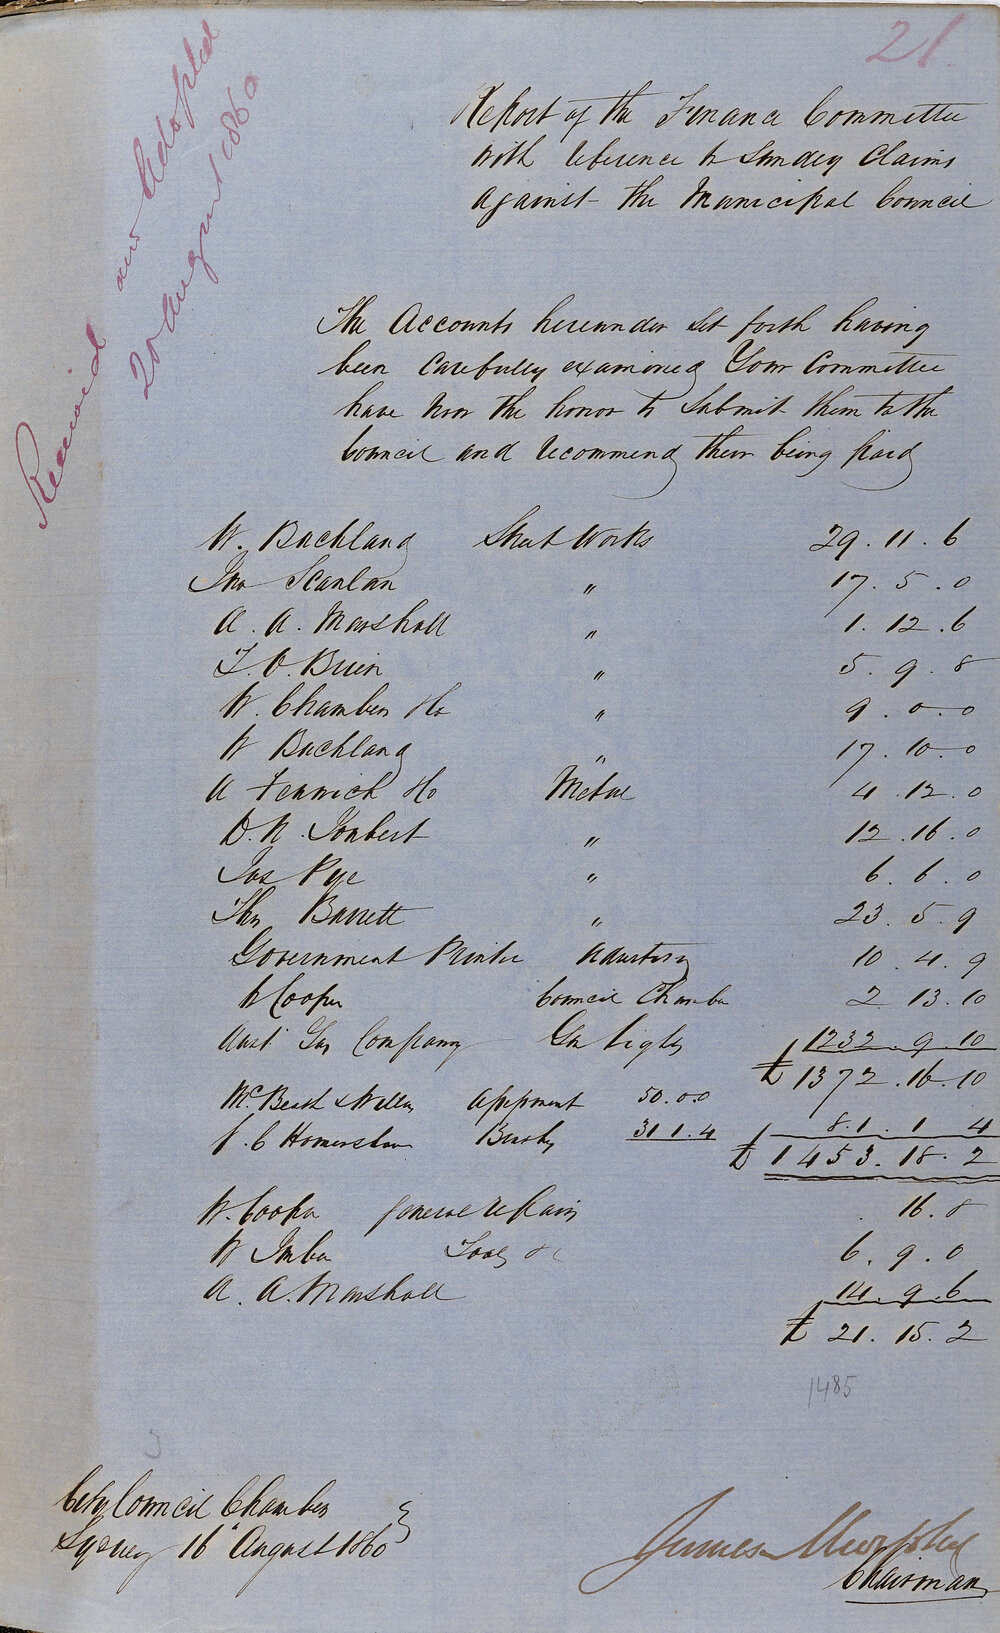 21.
Received and Adopted
20 August 1860
Report of the Finance Committee
with reference to Sundry Claims
against the Municipal Council
The Accounts hereunder set forth having
been Carefully examined Your Committee
have now the honor to Submit them to the
Council and recommend their being paid
W. Buchland Street Works 29. 11. 6
Jno Scanlan " 17. 5. 0
A. A. Marshall " 1. 12. 6
T. O. Brien " 5. 9. 8
W. Chambers & Co " 9. 0. 0
W Buchland " 17. 10. 0
A Fenwick & Co Metal 4. 12. 0
D. N. Joubert " 12. 16. 0
Jas Pye " 6. 6. 0
Thos Barrett " 23. 5. 9
Government Printer Advertising 10. 4. 9
W Cooper Council Chamber 2 13. 10
Aust Gas Company Gas Lights 1232. 9. 10
£ 1372. 16. 10
McBeath & Apprment 50. 0 0
Homersham 31 1. 4 81. 1 4
£ 1453. 18. 2
W. Cooper general repairs 16. 8
W Tools &c 6. 9. 0
A. A. Marshall 14. 9. 6
£ 21. 15. 2
1485
City Council Chamber
Sydney 16 August 1860
James Murphy
Chairman